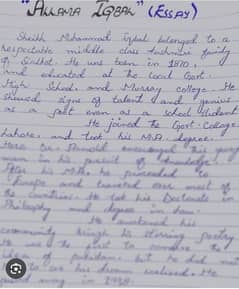 "ALLAMA IQBAL" (ESSAY)
Sheikh Mohammad Iqbal belonged to a
respectable middle class Kashmiri family
of Sialkot. He was born in 1870.
and educated at the local Govt.
High School and Murray college. He
showed signs of talent and genius
as poet even as a school student
He joined the Govt. College
Lahore and took his M.A degree.
Here Dr. Arnold encouraged this young
man in his pursuit of knowledge.
After his M.A he proceeded to
Europe and traveled over most of
the countries. He took his Doctorate in
Philosophy and degree in law.
He awakened his
community through his stirring poetry
He was the first to conceive the
idea of pakistan. but he did not
to see his dream realised. He
passed away in 1938.